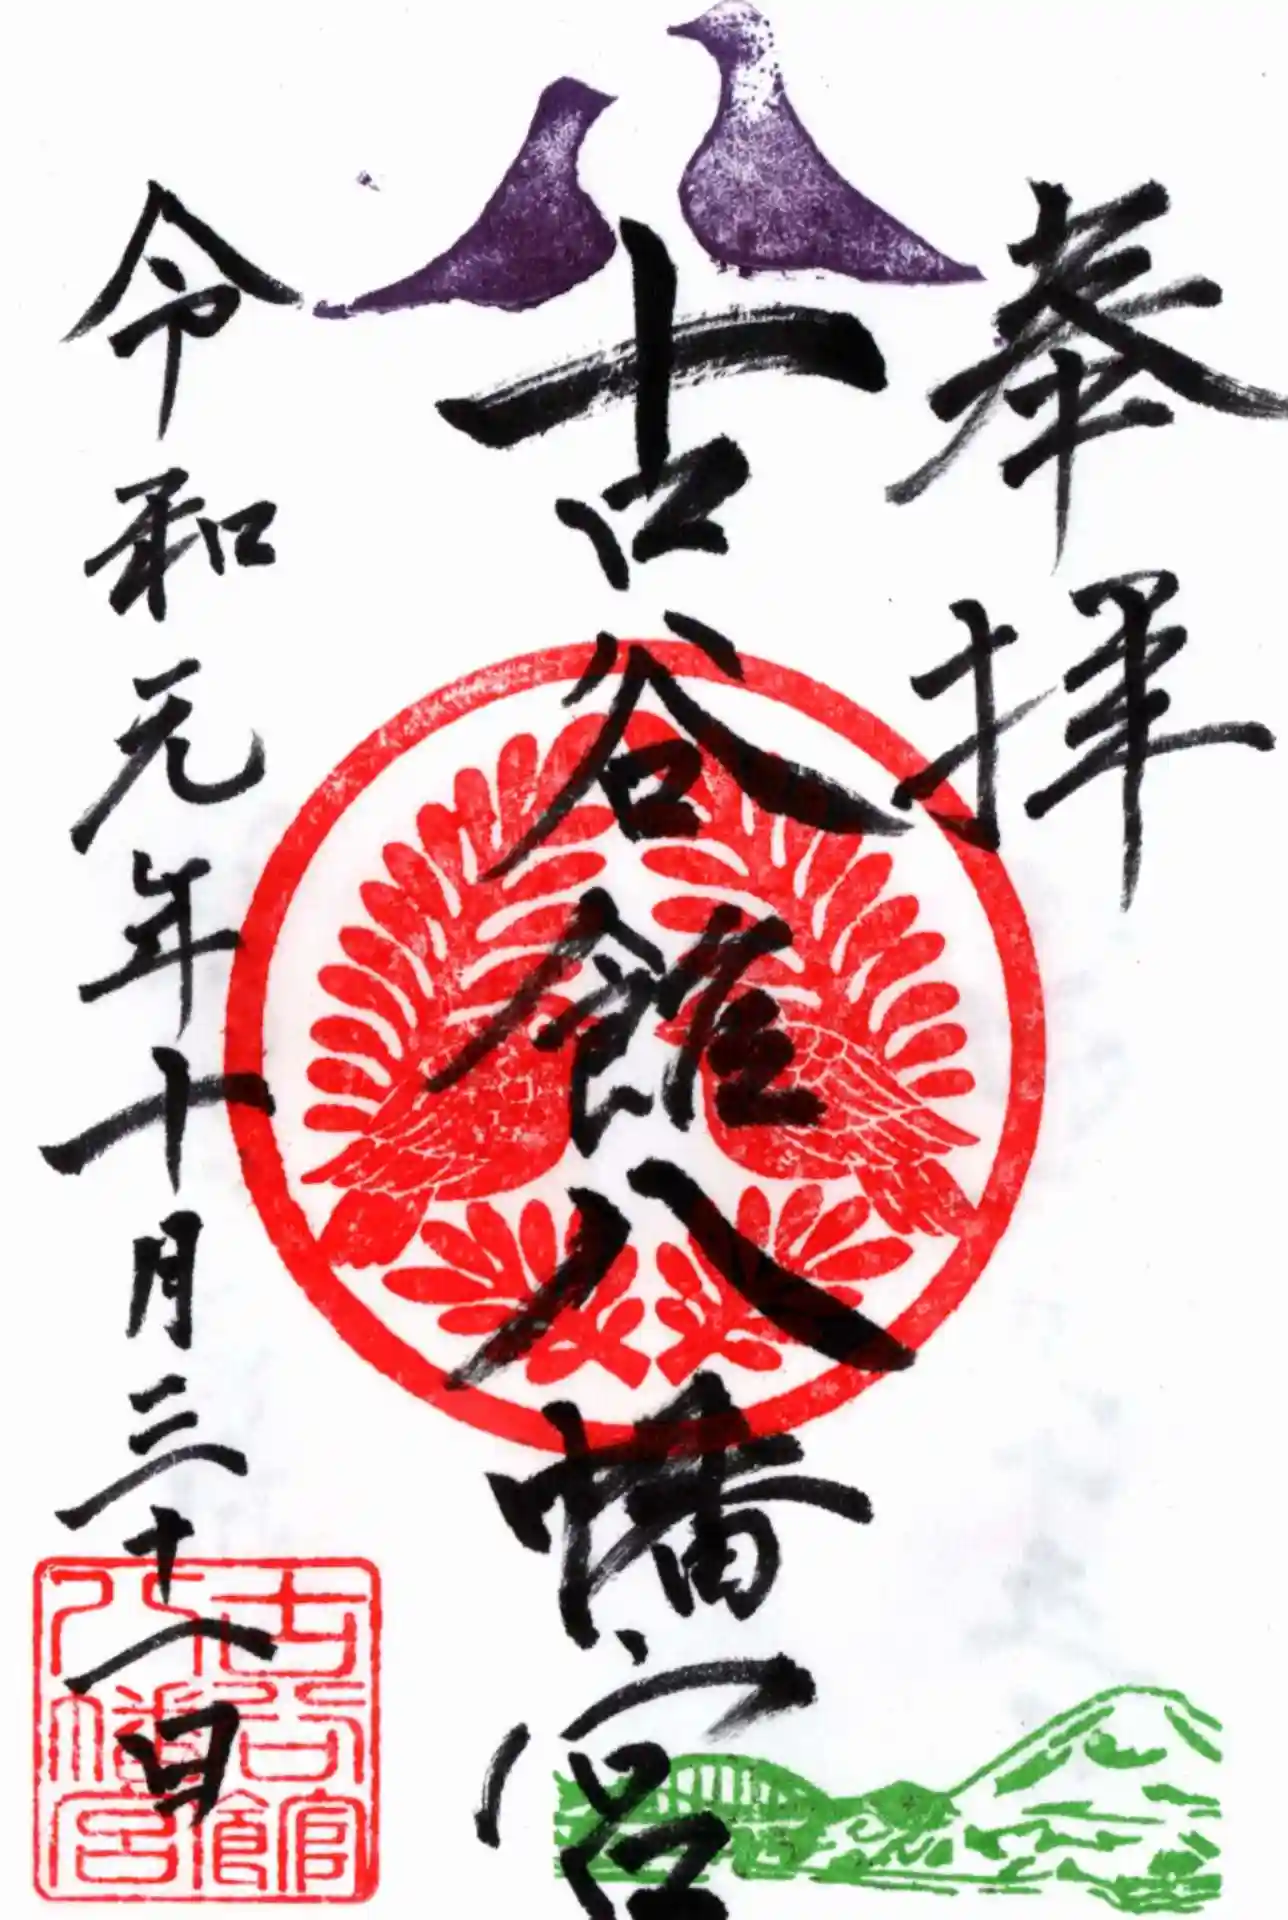 奉拝
古谷館八幡宮
令和元年十月三十一日
古谷館
八幡宮